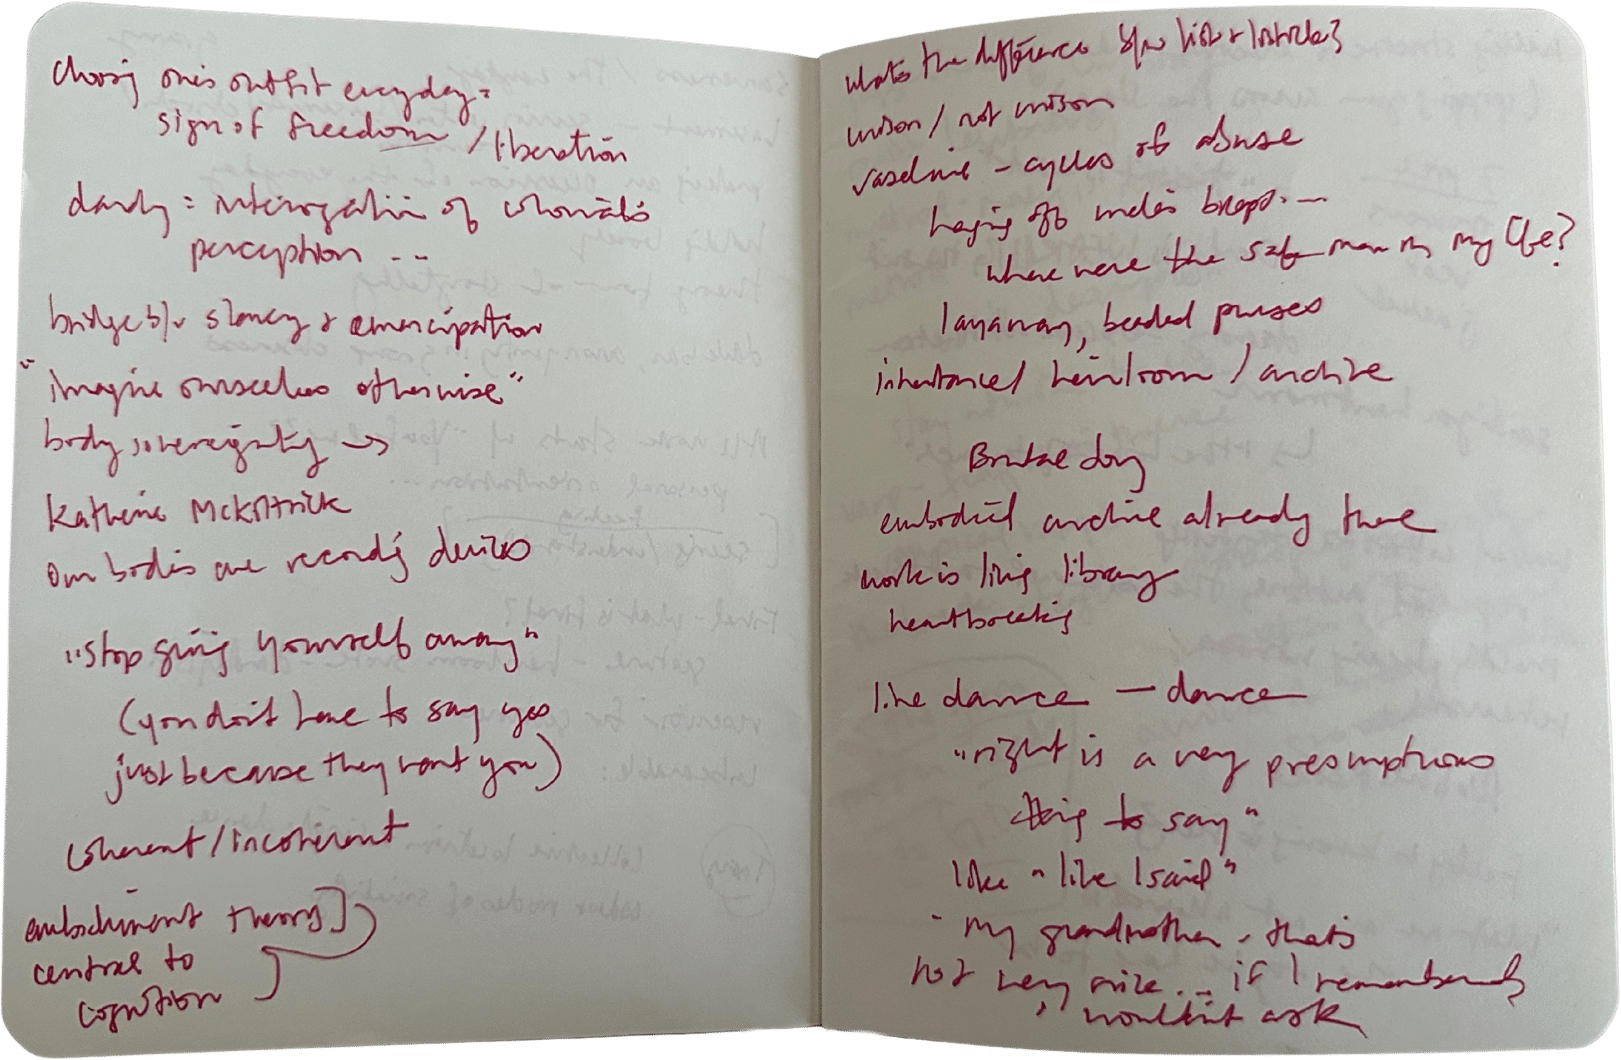 choosing one's outfit everyday =
sign of freedom / liberation
dandy = interrogation of
perception ...
bridge b/w slavery & emancipation
"imagine ourselves otherwise"
body sovereignty →
Katherine McKittrick
our bodies are recording devices
"stop giving yourself away"
(you don't have to say yes
just because they want you)
coherent / incoherent
embodiment theory]
central to
cognition
what's the difference b/w list &
unison / not unison
vaseline – cycles of abuse
where were the safe men in my life?
layaway, beaded purses
inheritance / heirloom / archive
Brutal day
embodied archive already there
work is living library
heartbreaking
like dance — dance
"right is a very presumptuous
thing to say"
like "like I said"
"my grandmother, that's
not very nice... if I remembered,
I wouldn't ask